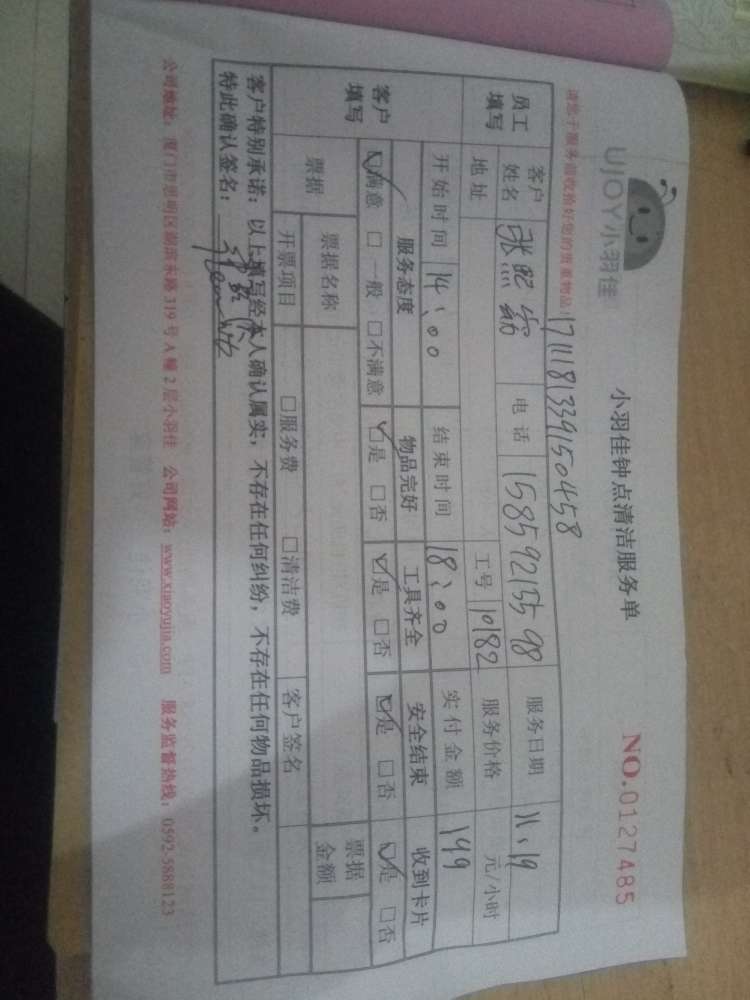 UJOY小羽佳
小羽佳钟点清洁服务单
NO.0127485
请您于服务前收拾好您的贵重物品!
1711181339150458
员工填写 客户姓名 电话 15859213598 服务日期 11.19
地址 工号 10182 服务价格 元/小时
客户填写 开始时间 14:00 结束时间 18:00 实付金额 149
服务态度 物品完好 工具齐全 安全结束 收到卡片
☑满意 □一般 □不满意 ☑是 □否 ☑是 □否 ☑是 □否 ☑是 □否
票据 票据名称 票据金额
开票项目 □服务费 □清洁费 客户签名
客户特别承诺:以上填写经本人确认属实,不存在任何纠纷,不存在任何物品损坏。
特此确认签名:
公司地址:厦门市思明区湖滨东路319号A幢2层小羽佳 公司网站:www.xiaoyujia.com 服务监督热线:0592-5888123